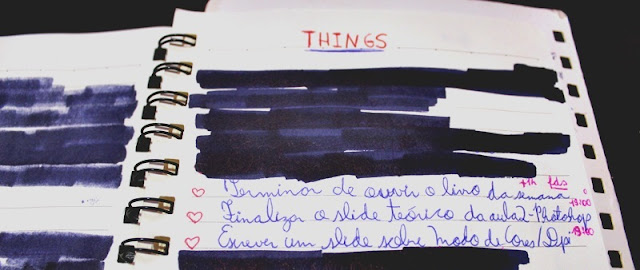 THINGS
♡ Terminar de ouvir o livro da semana +1h fds
♡ Finalizar o slide teórico da aula 2 - Photoshop
♡ Escrever um slide sobre Modo de Cores/Dpi